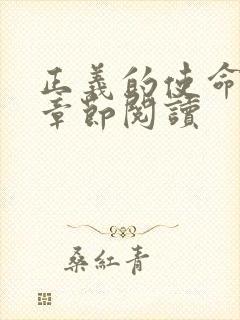 正義的使命
章節閱讀
桑紅青